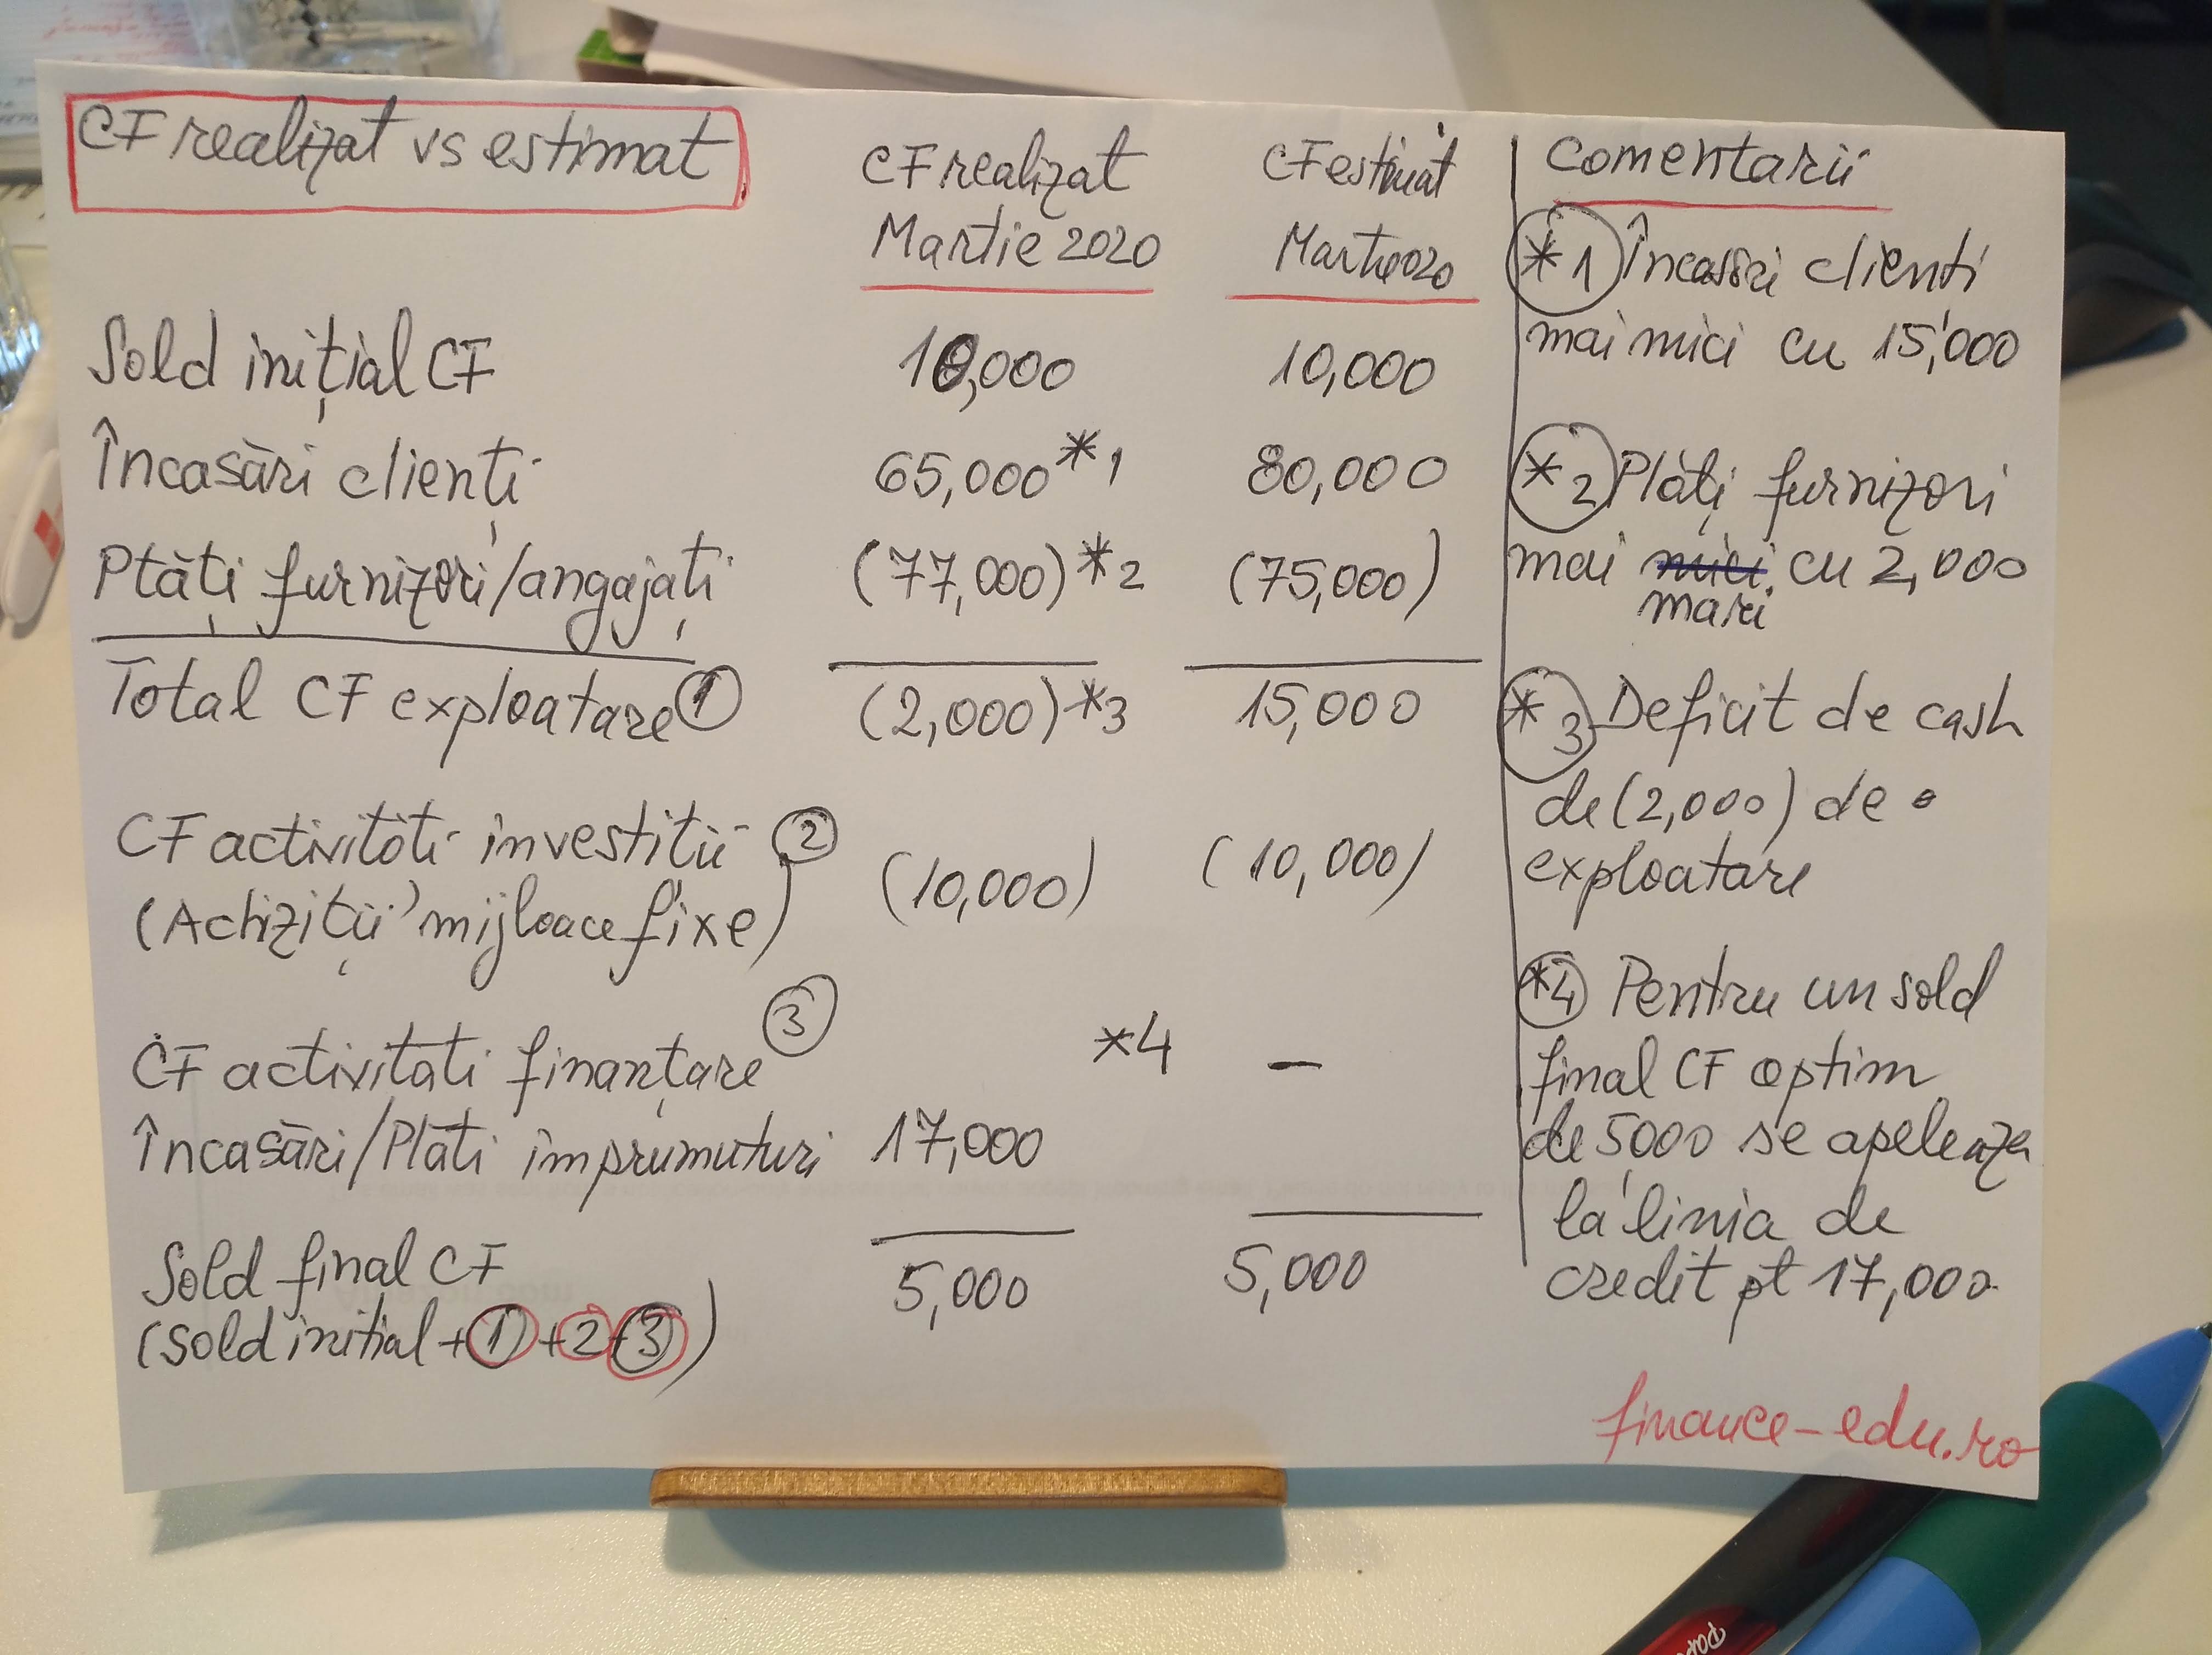 CF realizat vs estimat
CF realizat CF estimat
Martie 2020 Martie 020
Sold inițial CF 10,000 10,000
Încasări clienți 65,000 *1 80,000
Plăți furnizori/angajați (77,000) *2 (75,000)
Total CF exploatare 1 (2,000) *3 15,000
CF activități investiții 2
(Achiziții mijloace fixe) (10,000) (10,000)
CF activitati finanțare 3 *4 —
Încasări/Plăti imprumuturi 17,000
Sold final CF 5,000 5,000
(sold initial + 1 + 2 + 3)
Comentarii
*1 Încasări clienti
mai mici cu 15,000
*2 Plăți furnizori
mai mici cu 2,000
mari
*3 Deficit de cash
de (2,000) de
exploatare
*4 Pentru un sold
final CF optim
de 5000 se apeleaza
la linia de
credit pt 17,000
finance-edu.ro